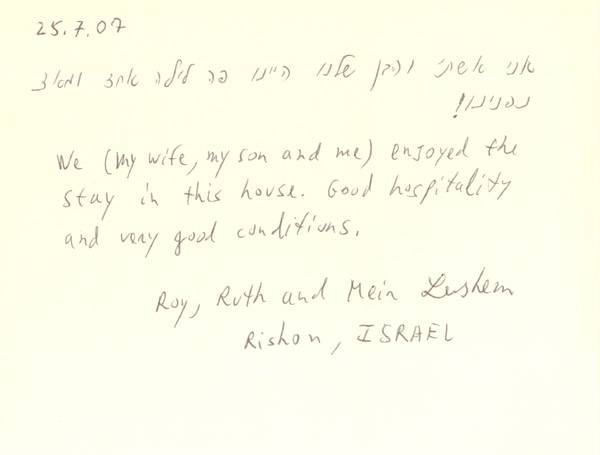 25.7.07
אני אשתי והבן שלנו היינו פה לילה אחד ומאוד
נהנינו!
We (my wife, my son and me) enjoyed the
stay in this house. Good hospitality
and very good conditions.
Roy, Ruth and Meir Leshem
Rishon, ISRAEL